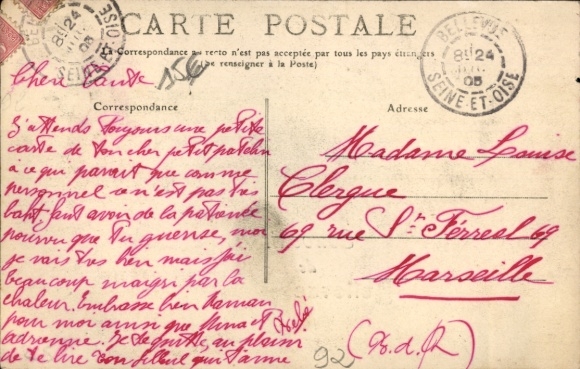 CARTE POSTALE
La Correspondance au recto n'est pas acceptée par tous les pays étrangers
(Se renseigner à la Poste)
BELLEVUE
8H 24
05
SEINE-ET-OISE
15€
Chère tante
Correspondance
Adresse
J'attends toujours une petite
carte de ton cher petit patelin
à ce qui parait que comme
personnel ce n'est pas très
faut avoir de la patience
pourvu que tu guerisse, moi
je vais très bien mais j'ai
beaucoup maigri par la
chaleur. Embrasse bien Maman
pour moi ainsi que et
adrienne. Je te quitte, au plaisir
de te lire ton filleul qui t'aime
Madame Louise
Clergue
69 rue St Férreol 69
Marseille
(B. d. R)
92